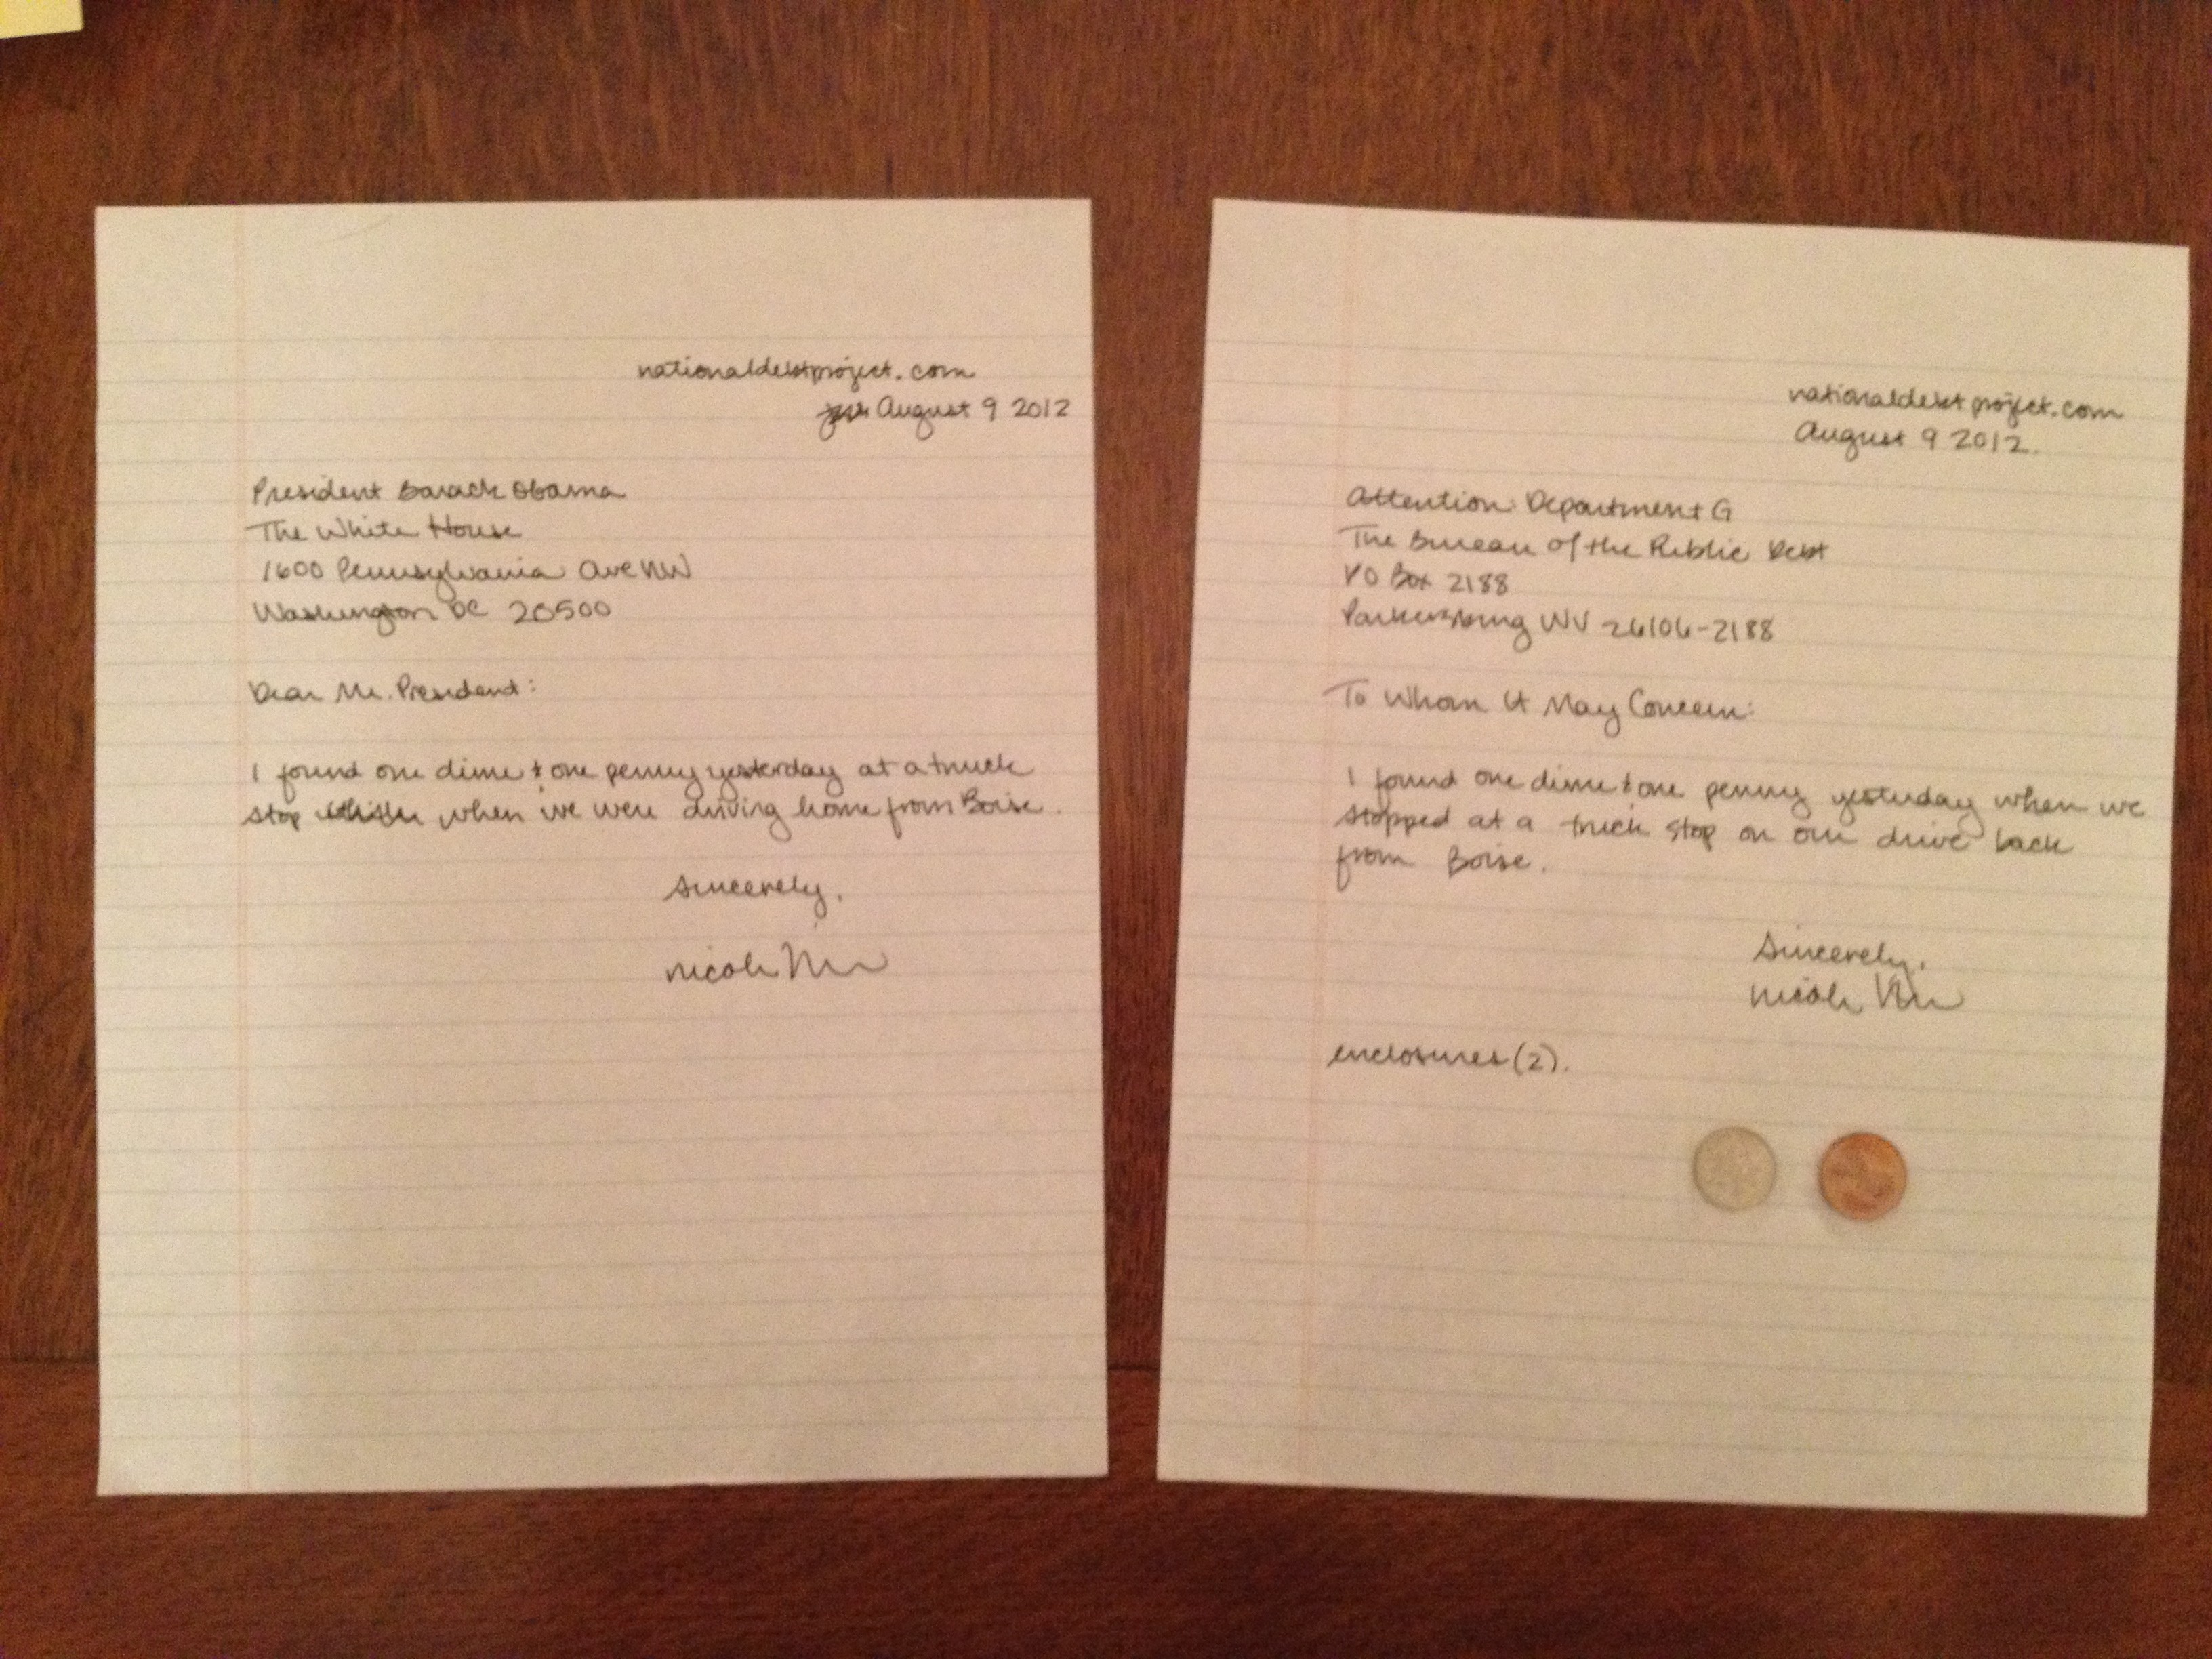 nationaldebtproject.com
August 9 2012
President Barack Obama
The White House
1600 Pennsylvania Ave NW
Washington DC 20500
Dear Mr. President:
I found one dime & one penny yesterday at a truck
stop when we were driving home from Boise.
Sincerely,
Nicole
nationaldebtproject.com
August 9 2012.
Attention: Department G
The Bureau of the Public Debt
PO Box 2188
Parkersburg WV 26106-2188
To Whom It May Concern:
I found one dime & one penny yesterday when we
stopped at a truck stop on our drive back
from Boise.
Sincerely,
Nicole
enclosures (2).